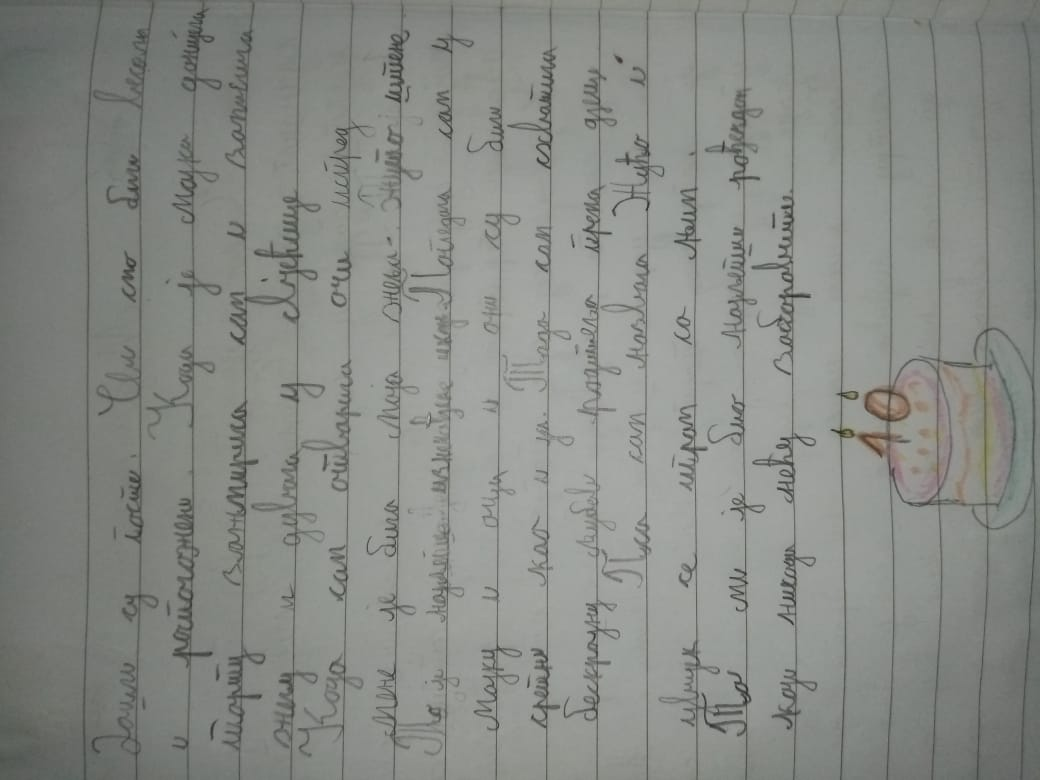 Дошли су гости. Сви смо били весели
и расположени. Када је мајка донијела
торту зажмирила сам и замислила
жељу и дувала у свјећице
Када сам отворила очи испред
мене је била моја жеља - жуто штене.
То је најљепше изненађење икад. Погледала сам у
мајку и оца и они су били
срећни као и ја. Тада сам схватила
бескрајну љубав родитеља према дјеци
Пса сам назвала Жућо и
увијек се играм са њим.
То ми је био најљепши рођендан
који никада нећу заборавити.
10